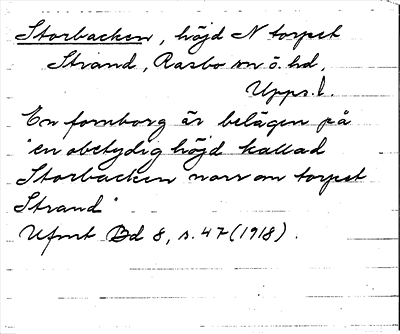 Storbacken, höjd N torpet
Strand, Rasbo sn o. hd,
Upps. l.
En fornborg är belägen på
"en obetydig höjd kallad
Storbacken norr om torpet
Strand"
Ufmt Bd 8, s. 47 (1918).